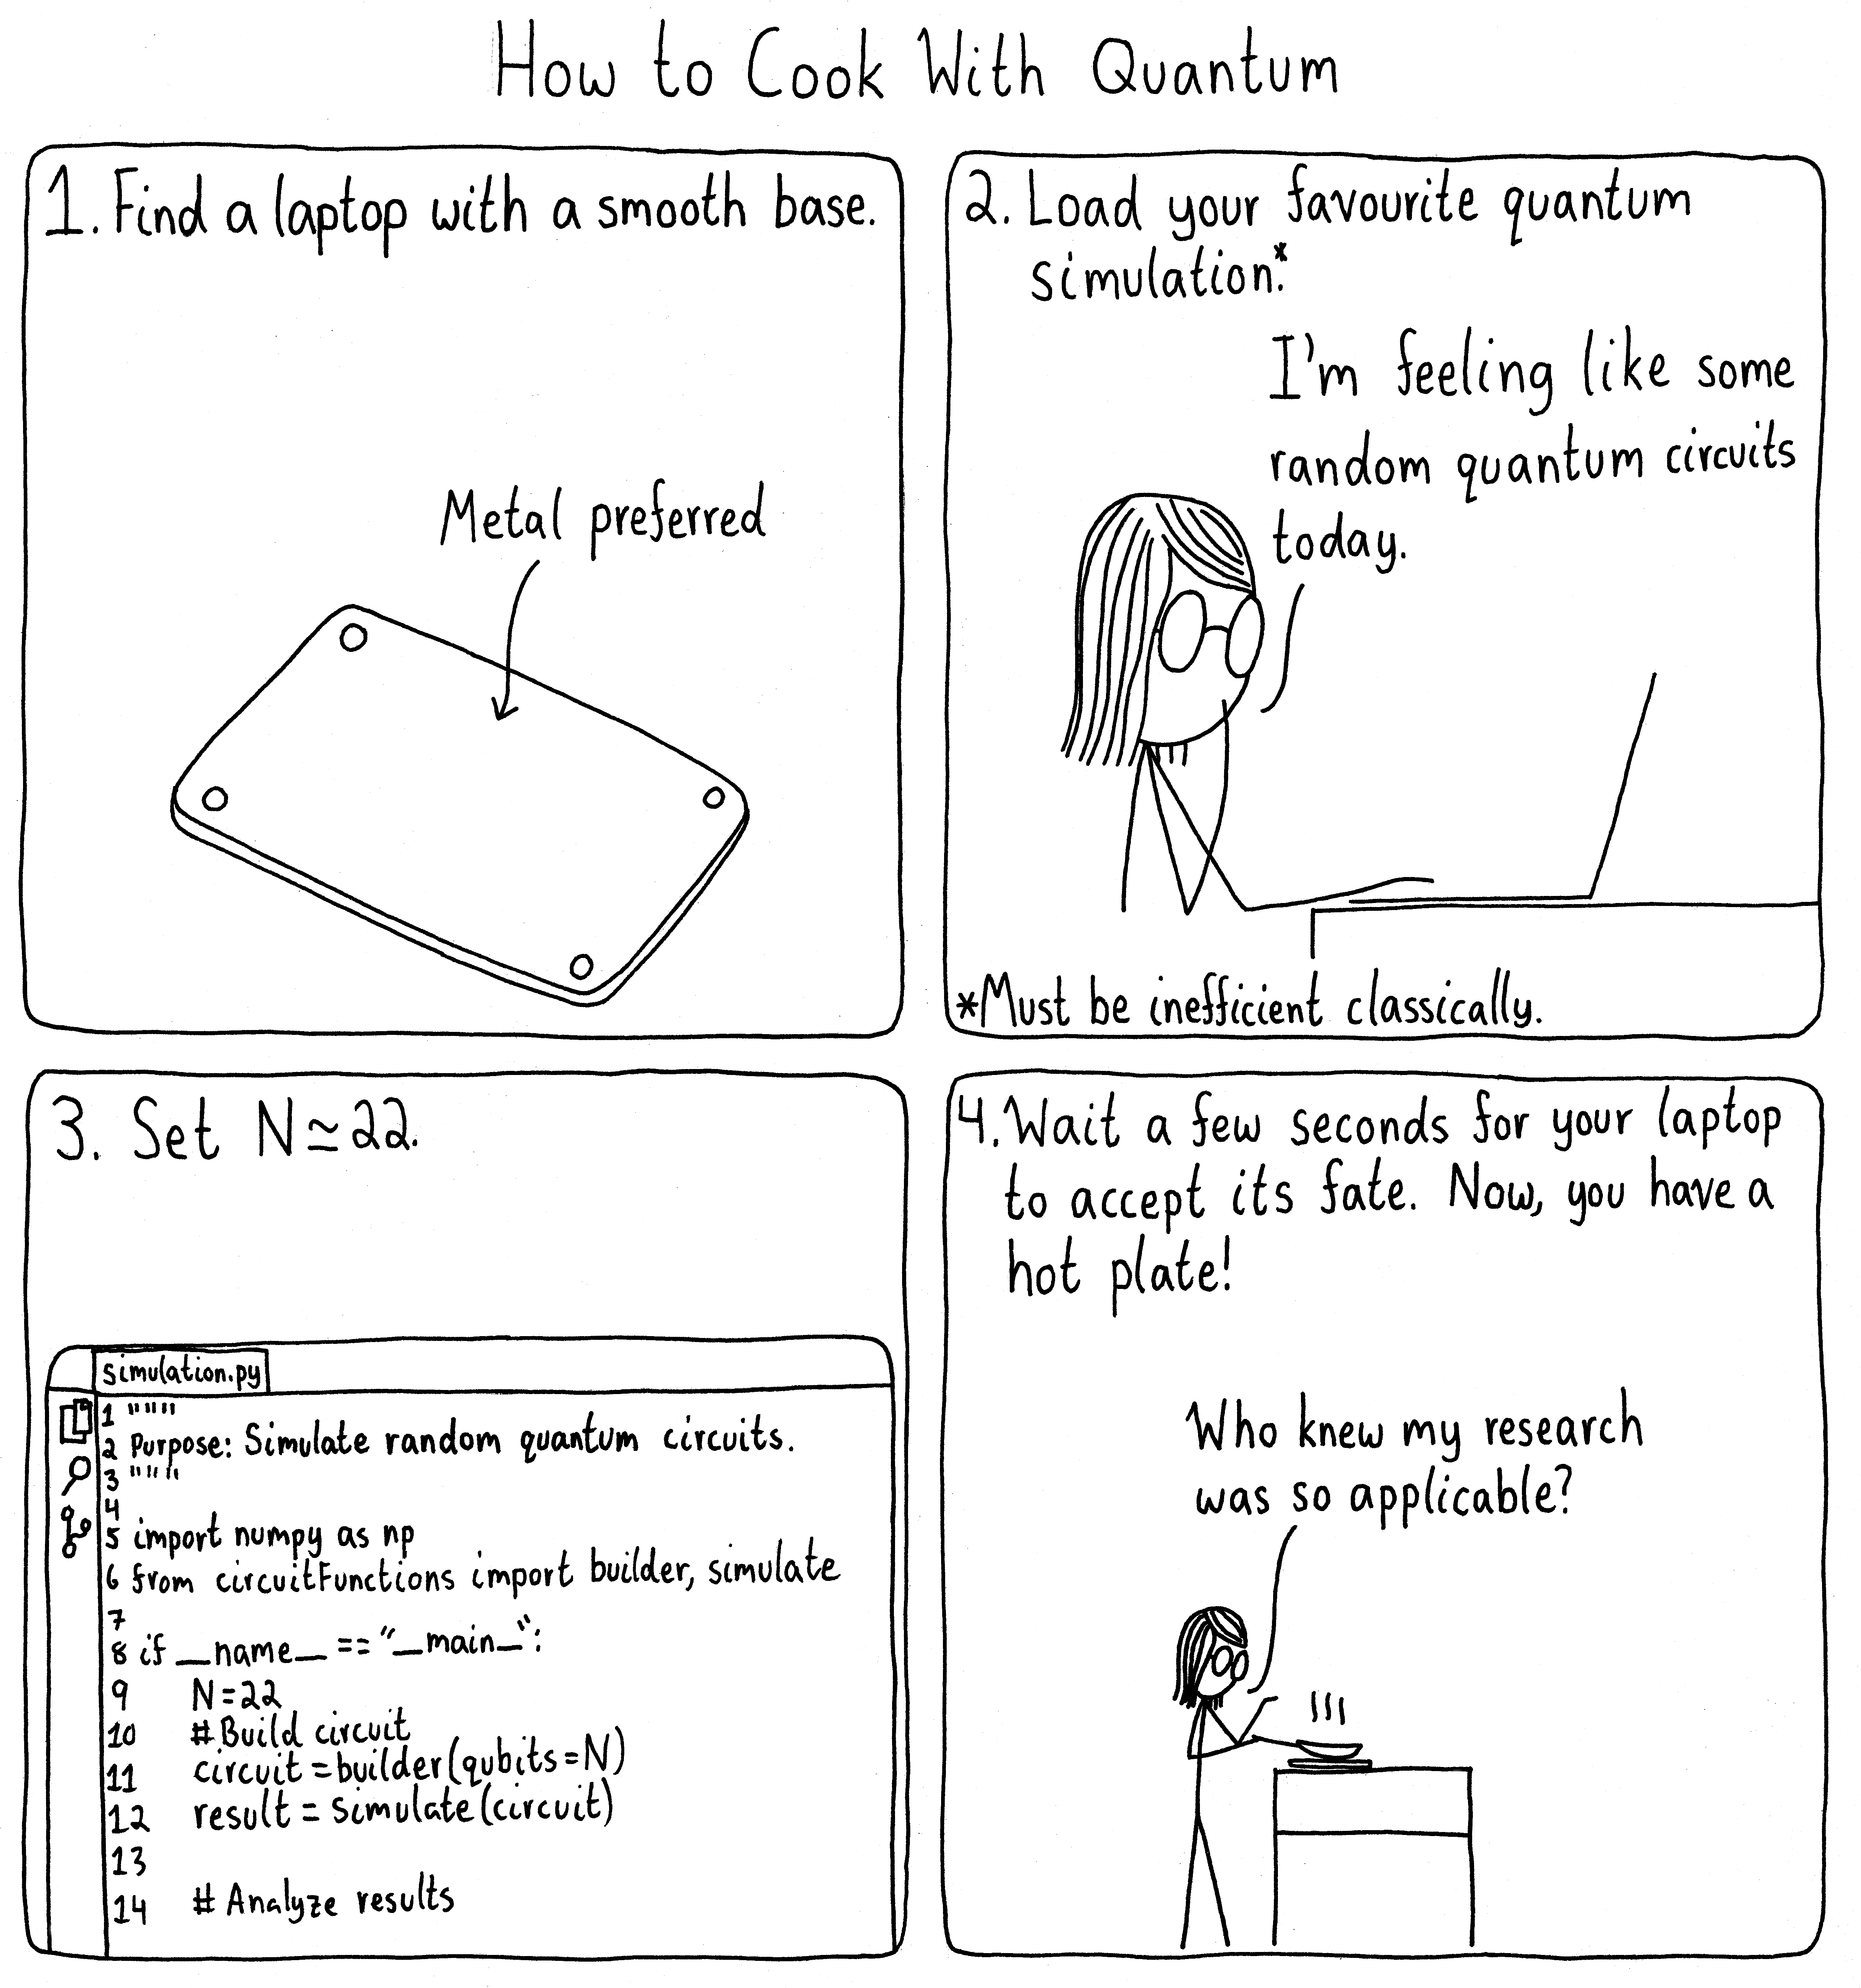 How to Cook With Quantum
1. Find a laptop with a smooth base.
Metal preferred
2. Load your favourite quantum
simulation.*
I'm feeling like some
random quantum circuits
today.
*Must be inefficient classically.
3. Set N≃22.
simulation.py
1 """
2 Purpose: Simulate random quantum circuits.
3 """
4
5 import numpy as np
6 from circuitFunctions import builder, simulate
7
8 if __name__ == "__main__":
9 N=22
10 # Build circuit
11 circuit = builder(qubits=N)
12 result = simulate(circuit)
13
14 # Analyze results
4. Wait a few seconds for your laptop
to accept its fate. Now, you have a
hot plate!
Who knew my research
was so applicable?